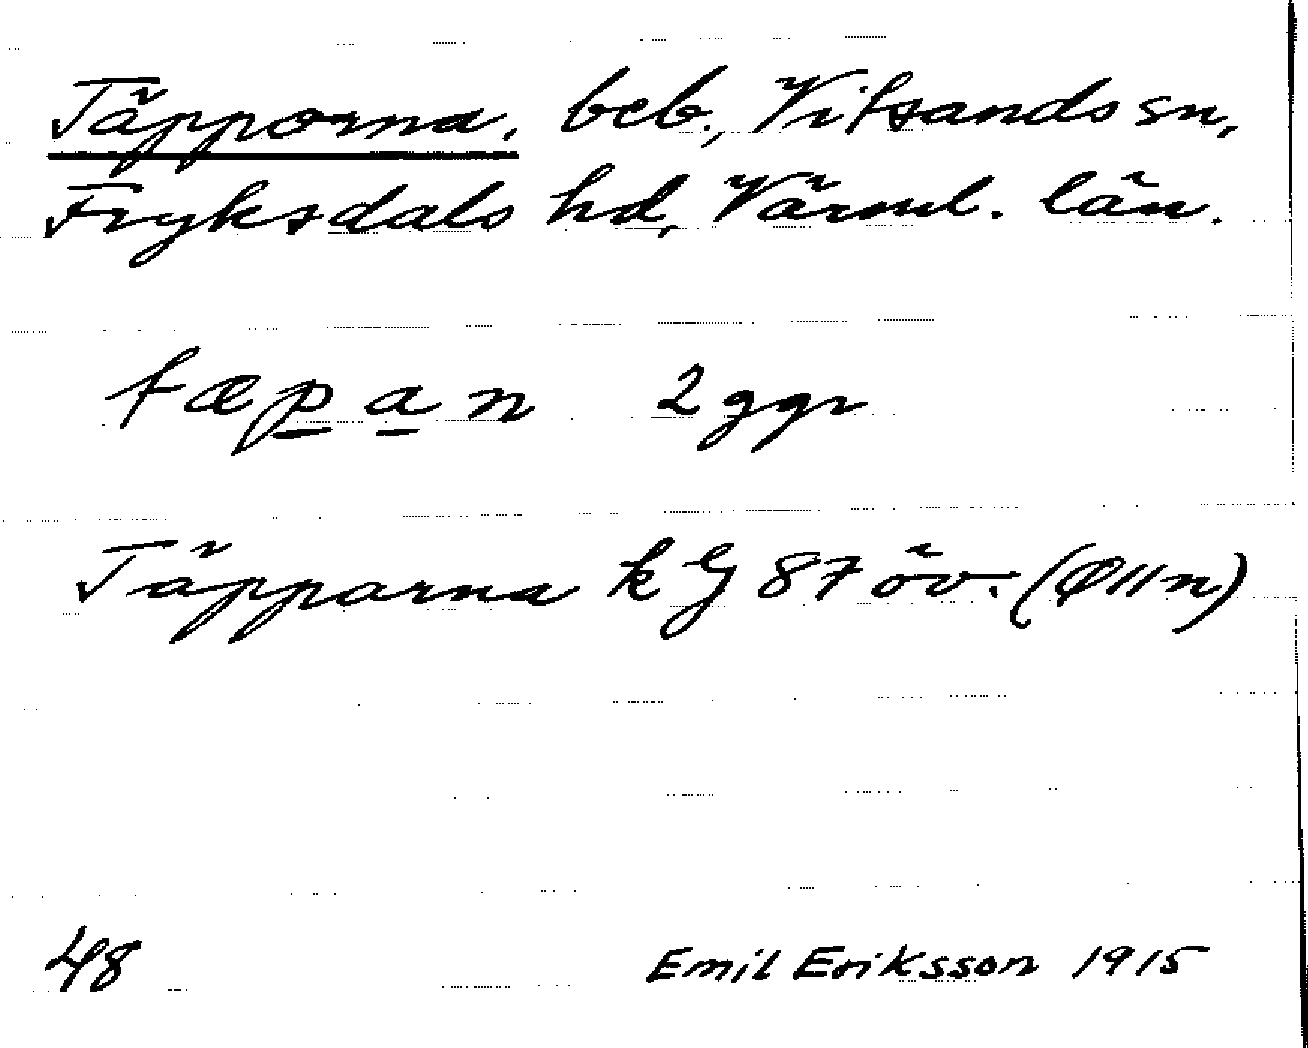 Täpporna, beb., Vitsands sn,
Fryksdals hd, Värml. län.
tæpan 2 ggr
Täpparna k G 87 öv. (Ø II n)
48 Emil Eriksson 1915